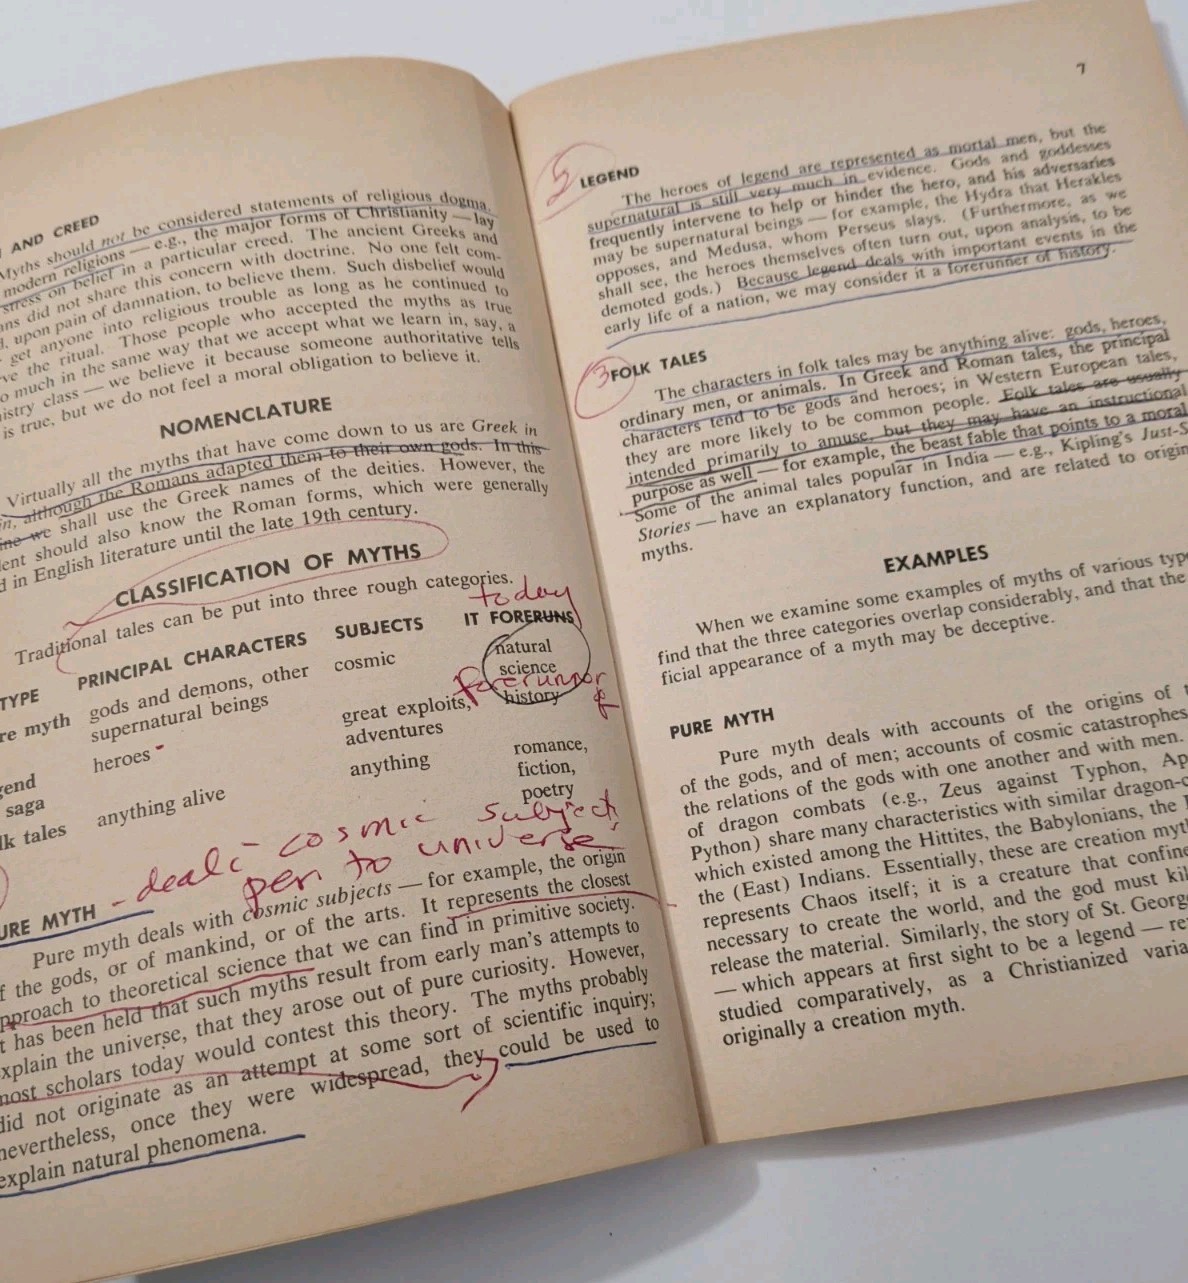 AND CREED
Myths should not be considered statements of religious dogma.
modern religions — e.g., the major forms of Christianity — lay
stress on belief in a particular creed. The ancient Greeks and
ans did not share this concern with doctrine. No one felt com-
d, upon pain of damnation, to believe them. Such disbelief would
get anyone into religious trouble as long as he continued to
ve the ritual. Those people who accepted the myths as true
o much in the same way that we accept what we learn in, say, a
istry class — we believe it because someone authoritative tells
is true, but we do not feel a moral obligation to believe it.
NOMENCLATURE
Virtually all the myths that have come down to us are Greek in
in, although the Romans adapted them to their own gods. In this
ine we shall use the Greek names of the deities. However, the
ent should also know the Roman forms, which were generally
d in English literature until the late 19th century.
CLASSIFICATION OF MYTHS
Traditional tales can be put into three rough categories.
today
TYPE PRINCIPAL CHARACTERS SUBJECTS IT FORERUNS
re myth gods and demons, other supernatural beings cosmic natural science
forerunner of
gend saga heroes great exploits, adventures history
lk tales anything alive anything romance, fiction, poetry
- deals cosmic subject
per to universe
URE MYTH
Pure myth deals with cosmic subjects — for example, the origin
f the gods, or of mankind, or of the arts. It represents the closest
pproach to theoretical science that we can find in primitive society.
t has been held that such myths result from early man's attempts to
xplain the universe, that they arose out of pure curiosity. However,
most scholars today would contest this theory. The myths probably
did not originate as an attempt at some sort of scientific inquiry;
nevertheless, once they were widespread, they could be used to
explain natural phenomena.
7
2 LEGEND
The heroes of legend are represented as mortal men, but the
supernatural is still very much in evidence. Gods and goddesses
frequently intervene to help or hinder the hero, and his adversaries
may be supernatural beings — for example, the Hydra that Herakles
opposes, and Medusa, whom Perseus slays. (Furthermore, as we
shall see, the heroes themselves often turn out, upon analysis, to be
demoted gods.) Because legend deals with important events in the
early life of a nation, we may consider it a forerunner of history.
3 FOLK TALES
The characters in folk tales may be anything alive: gods, heroes,
ordinary men, or animals. In Greek and Roman tales, the principal
characters tend to be gods and heroes; in Western European tales,
they are more likely to be common people. Folk tales are usually
intended primarily to amuse, but they may have an instructional
purpose as well — for example, the beast fable that points to a moral
Some of the animal tales popular in India — e.g., Kipling's Just-S
Stories — have an explanatory function, and are related to origin
myths.
EXAMPLES
When we examine some examples of myths of various type
find that the three categories overlap considerably, and that the
ficial appearance of a myth may be deceptive.
PURE MYTH
Pure myth deals with accounts of the origins of t
of the gods, and of men; accounts of cosmic catastrophes
the relations of the gods with one another and with men.
of dragon combats (e.g., Zeus against Typhon, Ap
Python) share many characteristics with similar dragon-c
which existed among the Hittites, the Babylonians, the
the (East) Indians. Essentially, these are creation myt
represents Chaos itself; it is a creature that confine
necessary to create the world, and the god must kil
release the material. Similarly, the story of St. George
— which appears at first sight to be a legend — re
studied comparatively, as a Christianized varia
originally a creation myth.